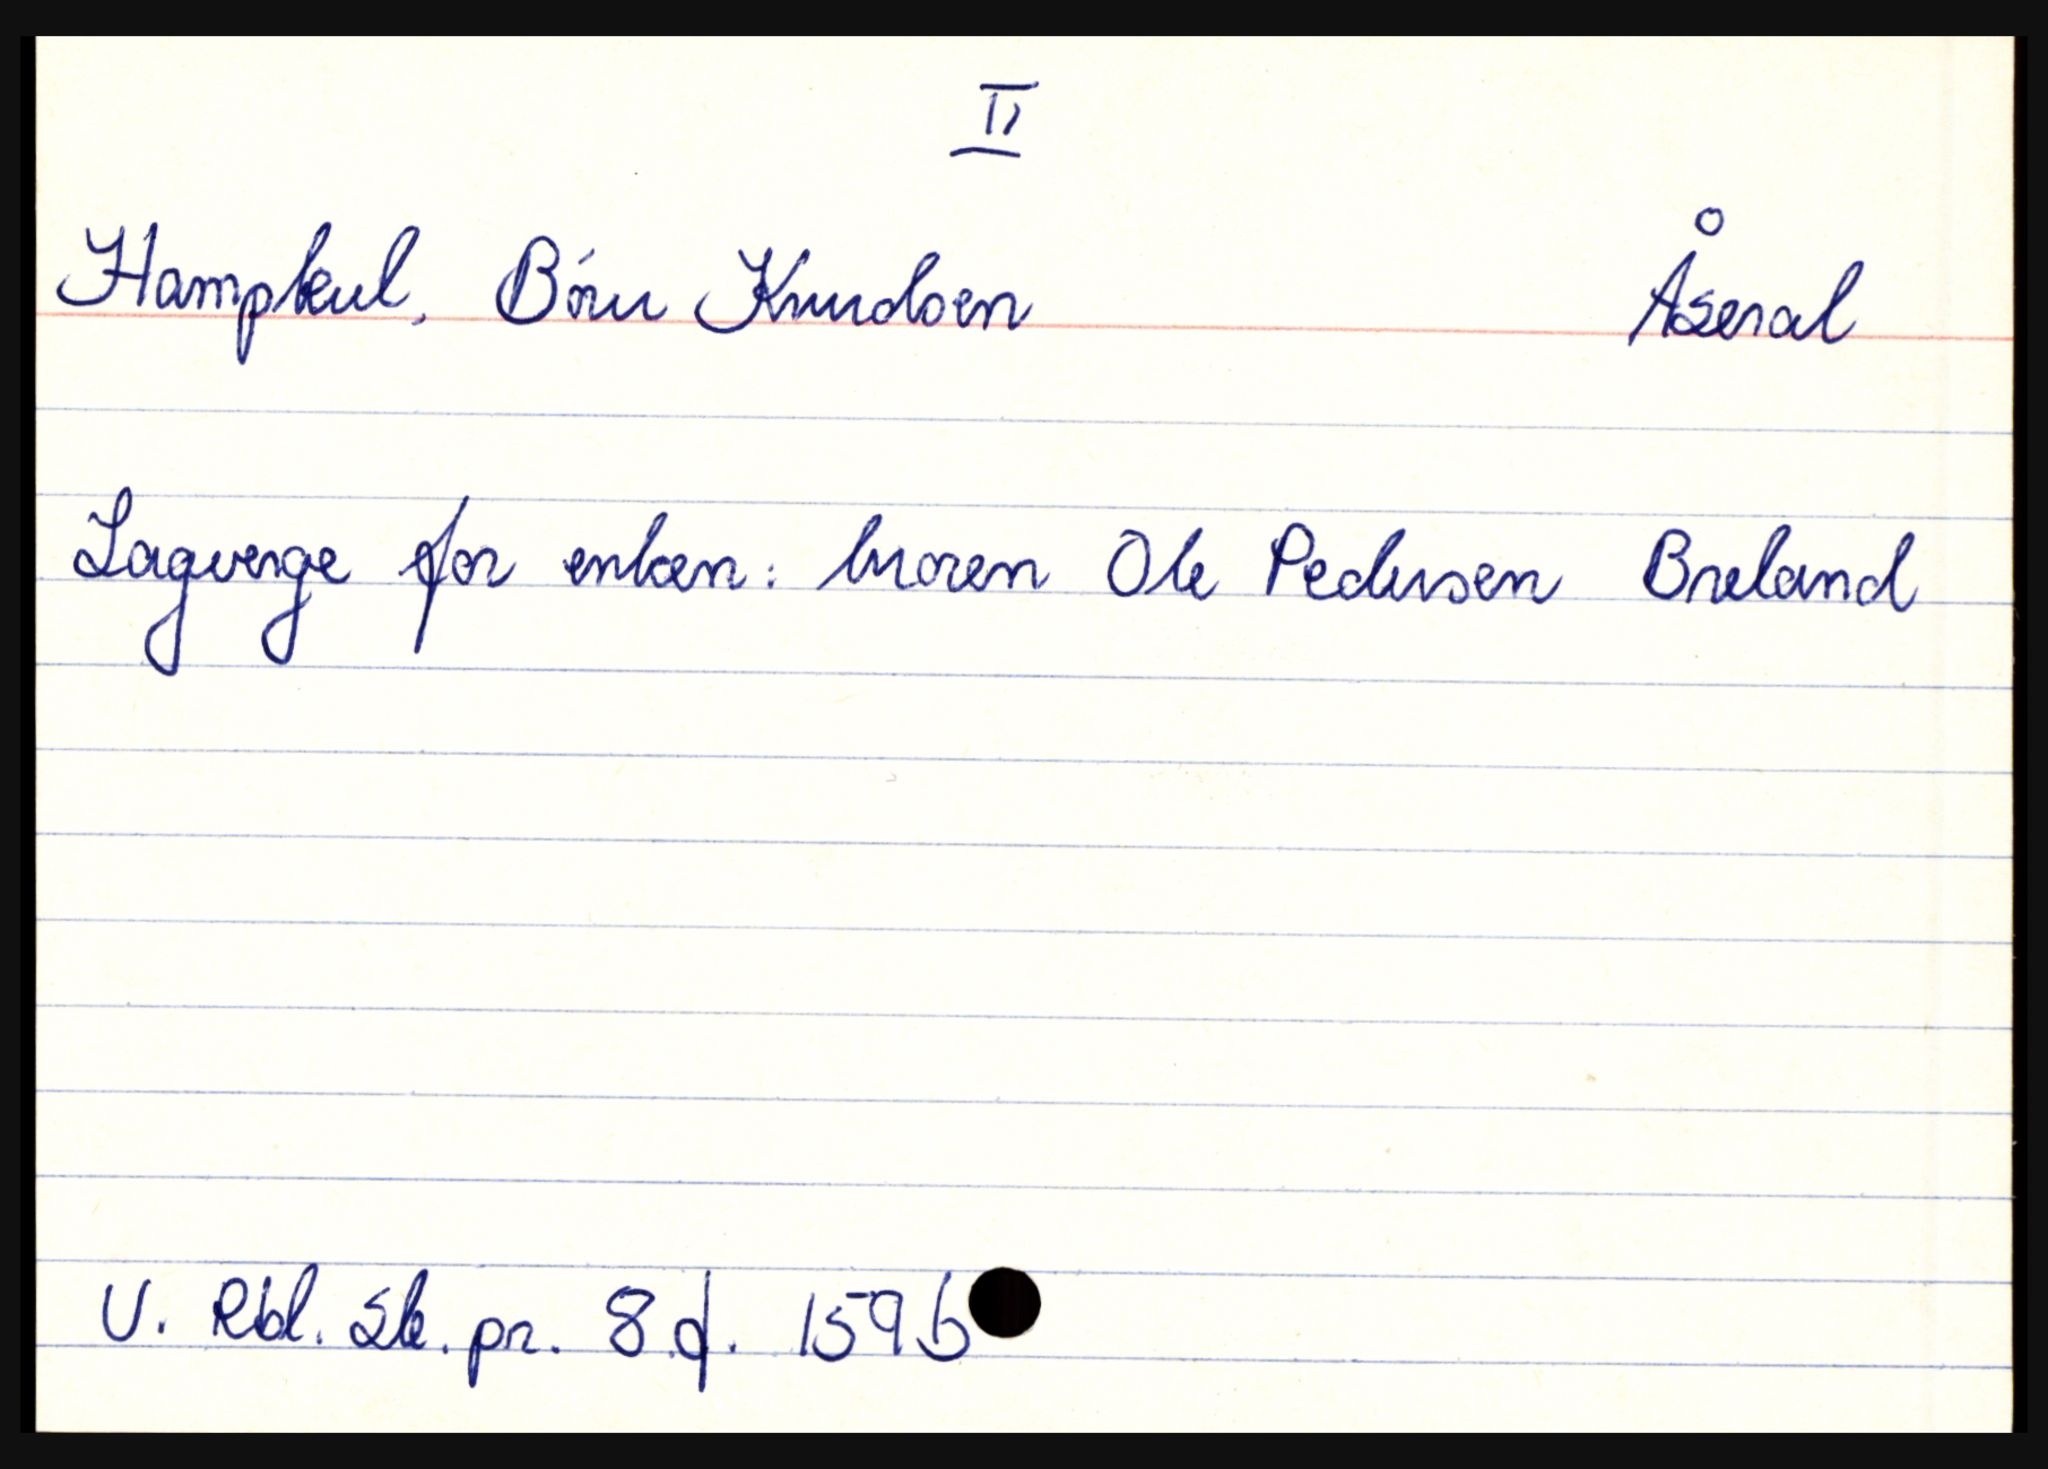 II
Hampkul, Børu Knudsen Åseral
Lagverge for enken: broren Ole Pedersen Breland
V. Rbl. Sk. pr. 8 f. 159 b